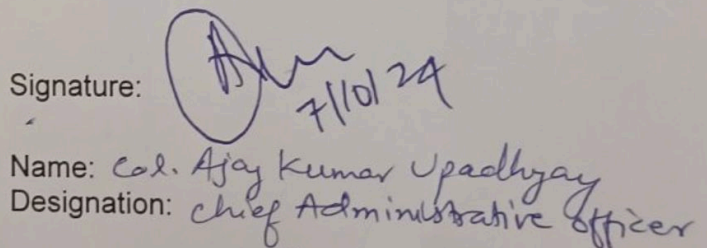 Signature:
7/10/24
Name: Col. Ajay Kumar Upadhyay
Designation: chief Administrative officer